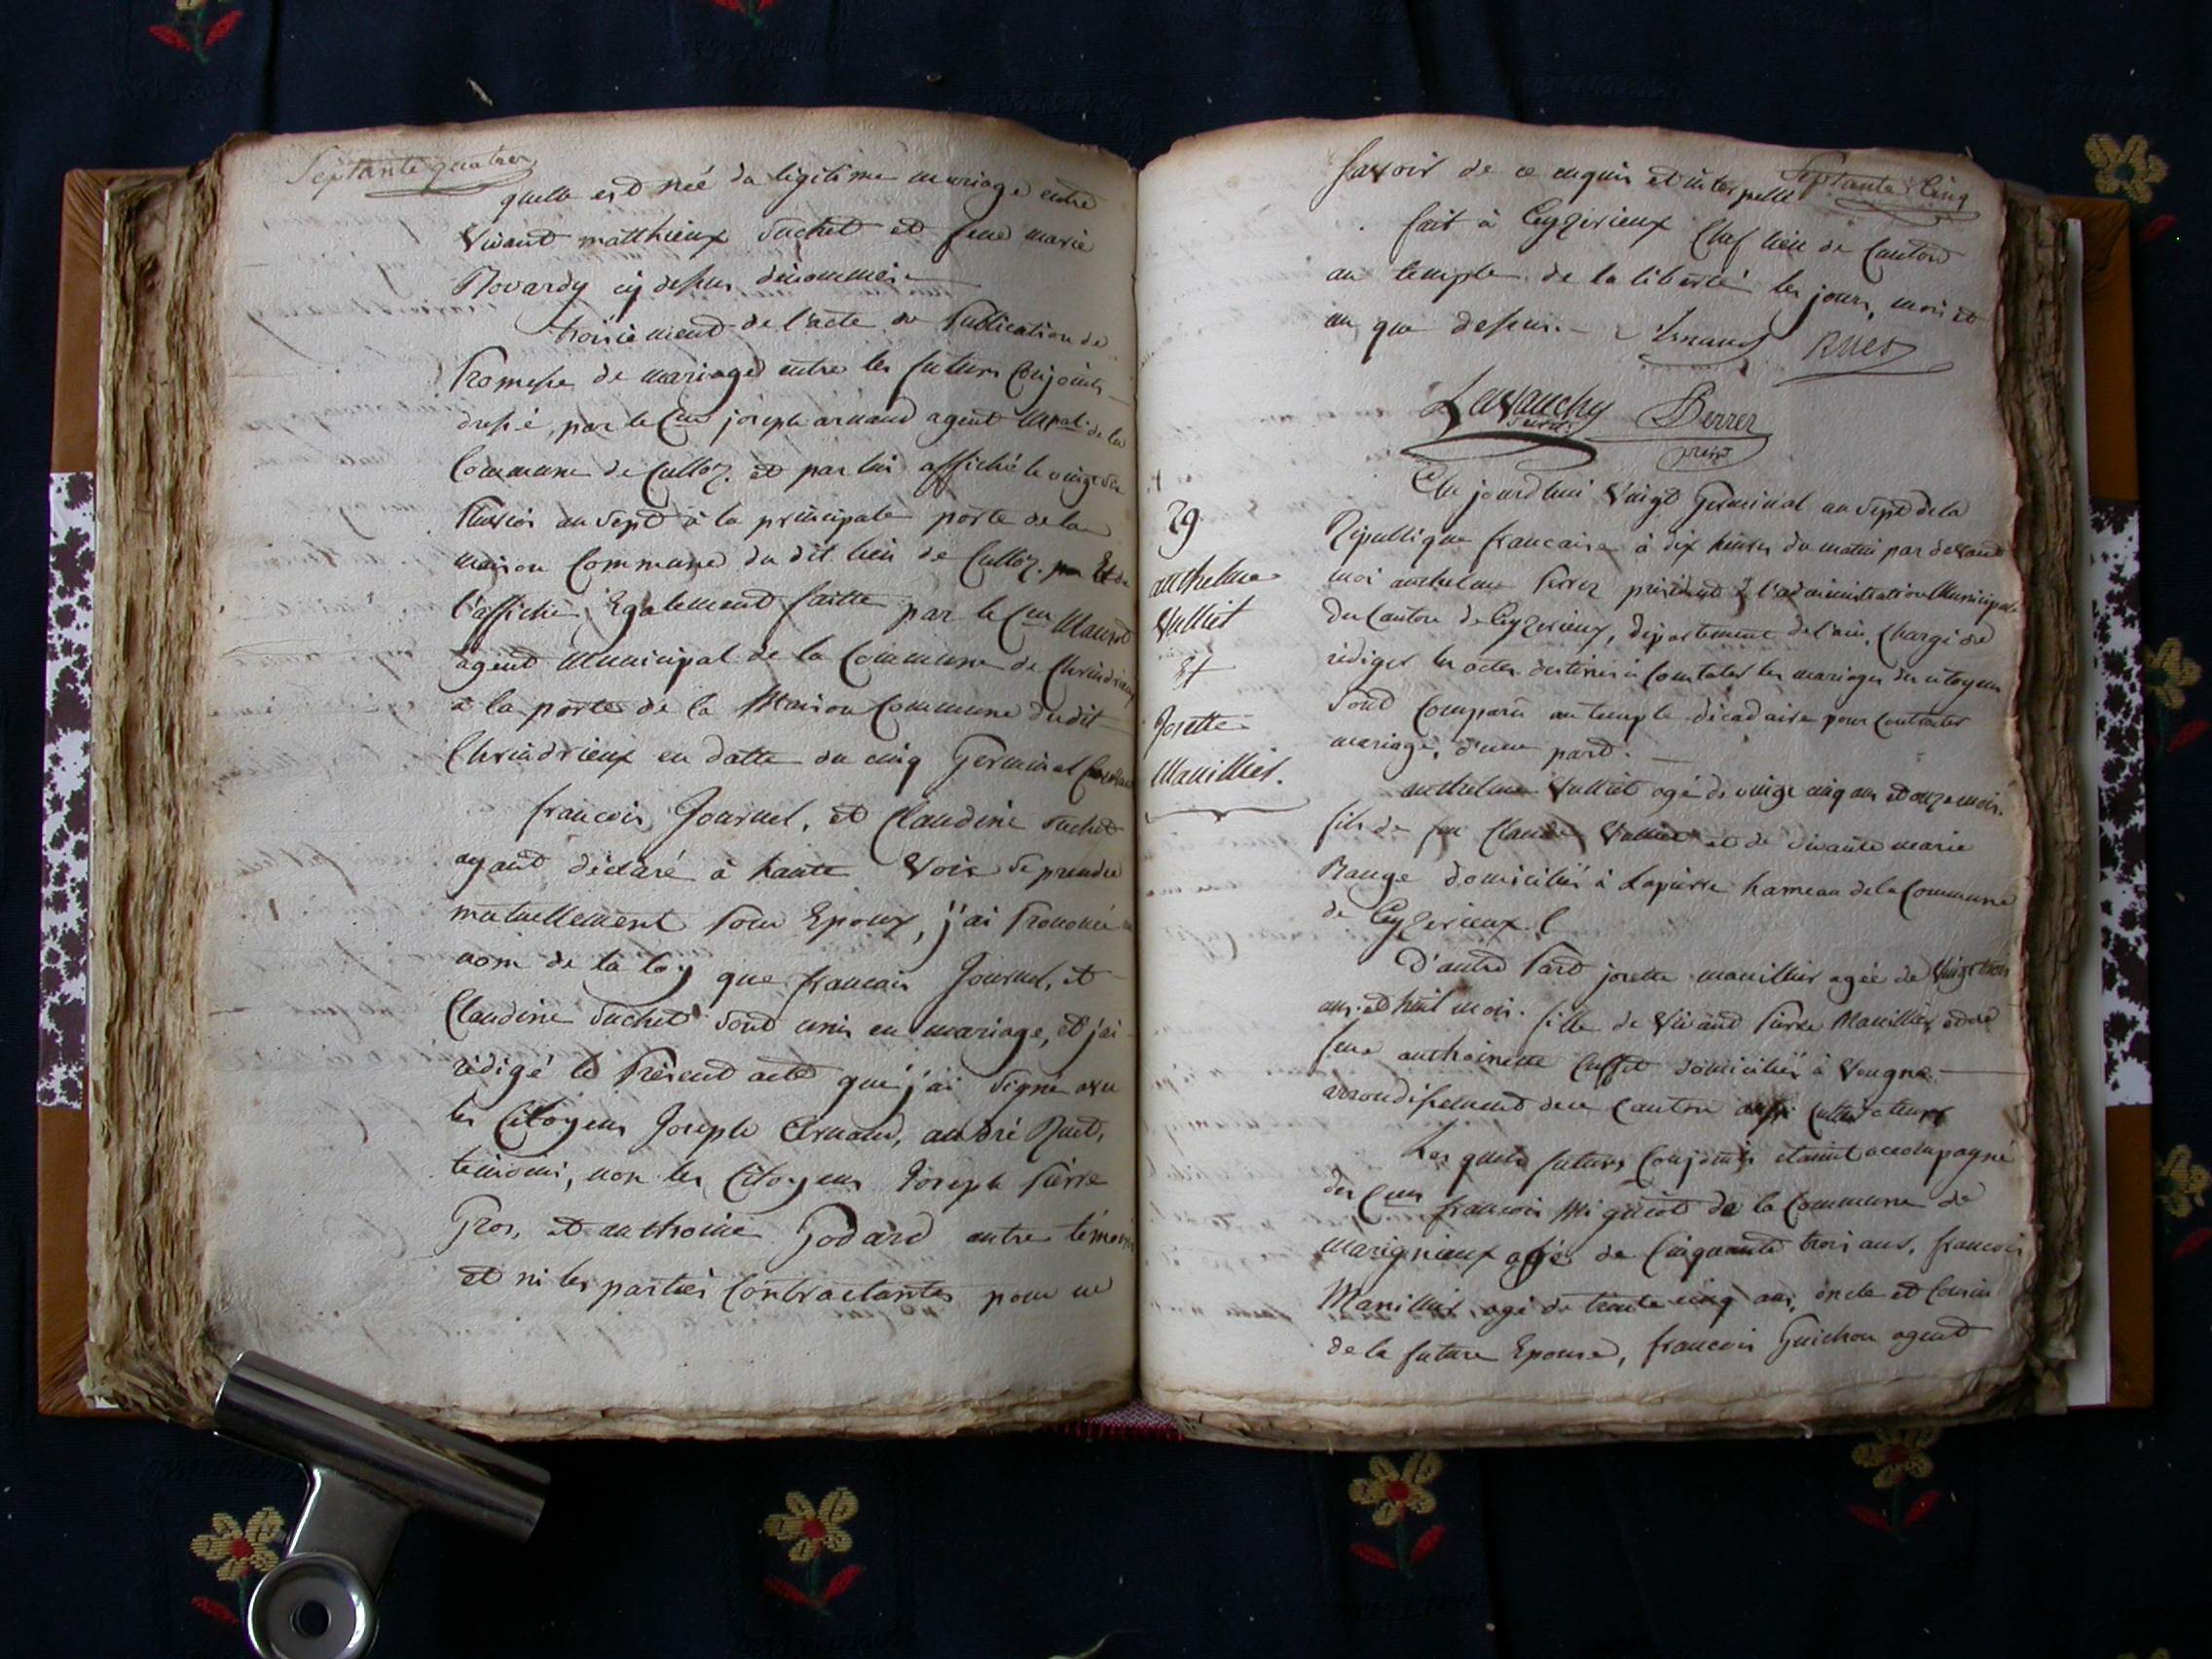 Septante quatre
quelle est née du légitime mariage entre
Vivant matthieux Suchet et feue marie
Rovardy cy dessus dénommés
troisiement de l'acte de Publication de
Promesse de mariage entre les futurs Conjoints
dressé, par le Cen joseph arnaud agent Mpal de la
Commune de Culloz. et par lui affiché le vingt six
Pluviôs an Sept à la principale porte de la
maison Commune du dit lieu de Culloz. Et de
l'affiche, Egalement faitte par le Cen
agent Municipal de la Commune de Chrindrieux
à la porte de la Maison Commune dudit
Chrindrieux en datte du cinq Germinal Courant
francois Journel, et Claudine Suchet
ayant déclaré à haute Voix se prendre
mutuellement Pour Epoux, j'ai Prononcé au
nom de la loy que francois Journel, et
Claudine Suchet Sont unis en mariage, et j'ai
rédigé le Présent acte que j'ai Signé avec
les Citoyens Joseph Arnaud, andré Ruet,
témoins, non les Citoyens Joseph Pierre
Gros, et anthoine Godard autre témoins
et ni les parties Contractantes pour ne
Septante Cinq
Savoir de ce enquis et interpellé
fait à Ceyzerieux Chef lieu de Canton
au temple de la liberté les jours, mois et
an que dessus. Arnaud Ruet
Lavauchy Perrer
presdt
Au jourdhui Vingt Germinal an Sept de la
République francaise à dix heures du matin par devant
moi anthelme Perrer président de l'administration Municipale
Du Canton de Ceyzerieux, département de l'ain, Chargé de
rédiger les actes destinés à Constater les mariages des citoyens
Sont Comparû au temple décadaire pour Contracter
mariage, d'une part.
29
anthelme
Vulliet
Et
Josette
Manillier.
anthelme Vulliet agé de vingt cinq ans et onze mois.
fils de feu Claude Vulliet et de vivante marie
Range domiciliés à Lapierre hameau de la Commune
de Ceyzerieux.
D'autre Part josette manillier agée de Vingt trois
ans et huit mois. fille de Vivant Pierre Manillier et de
feue anthoinette Cuffet domiciliés à Vongne
arrondissement de ce Canton aussi Cultivateurs
Les quels futurs Conjoints etaient accompagné
des Cens francois Miguiot de la Commune de
marignieux agé de Cinquante trois ans, francois
Manillier, agé de trente cinq ans, oncle et Cousin
de la future Epouse, francois Guichon agent